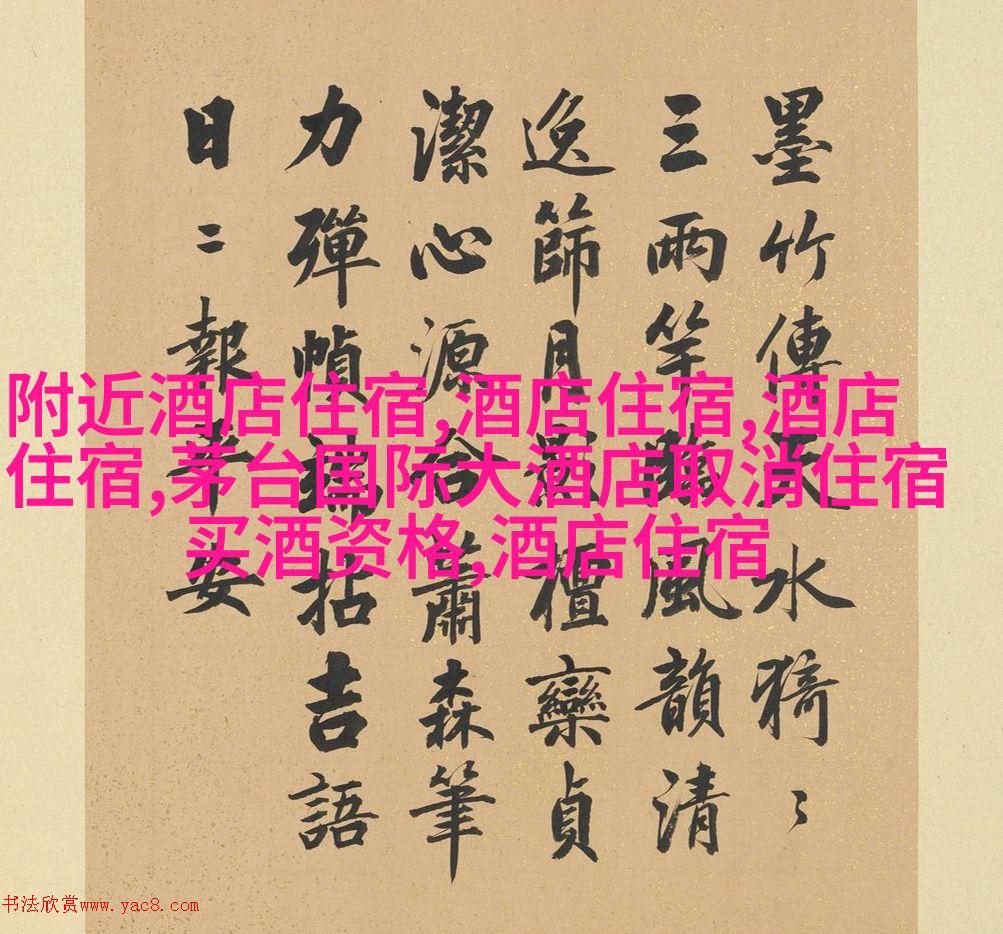 附近酒店住宿,酒店住宿,酒店
住宿,茅台国际大酒店取消住宿
买酒资格,酒店住宿
墨竹傳天水猗〻
三兩竿風韻清
逸篩月檀欒貞
潔心源合蕭森筆
力彈幀端拈吉語
日二報平安
书法欣赏www.yac8.com